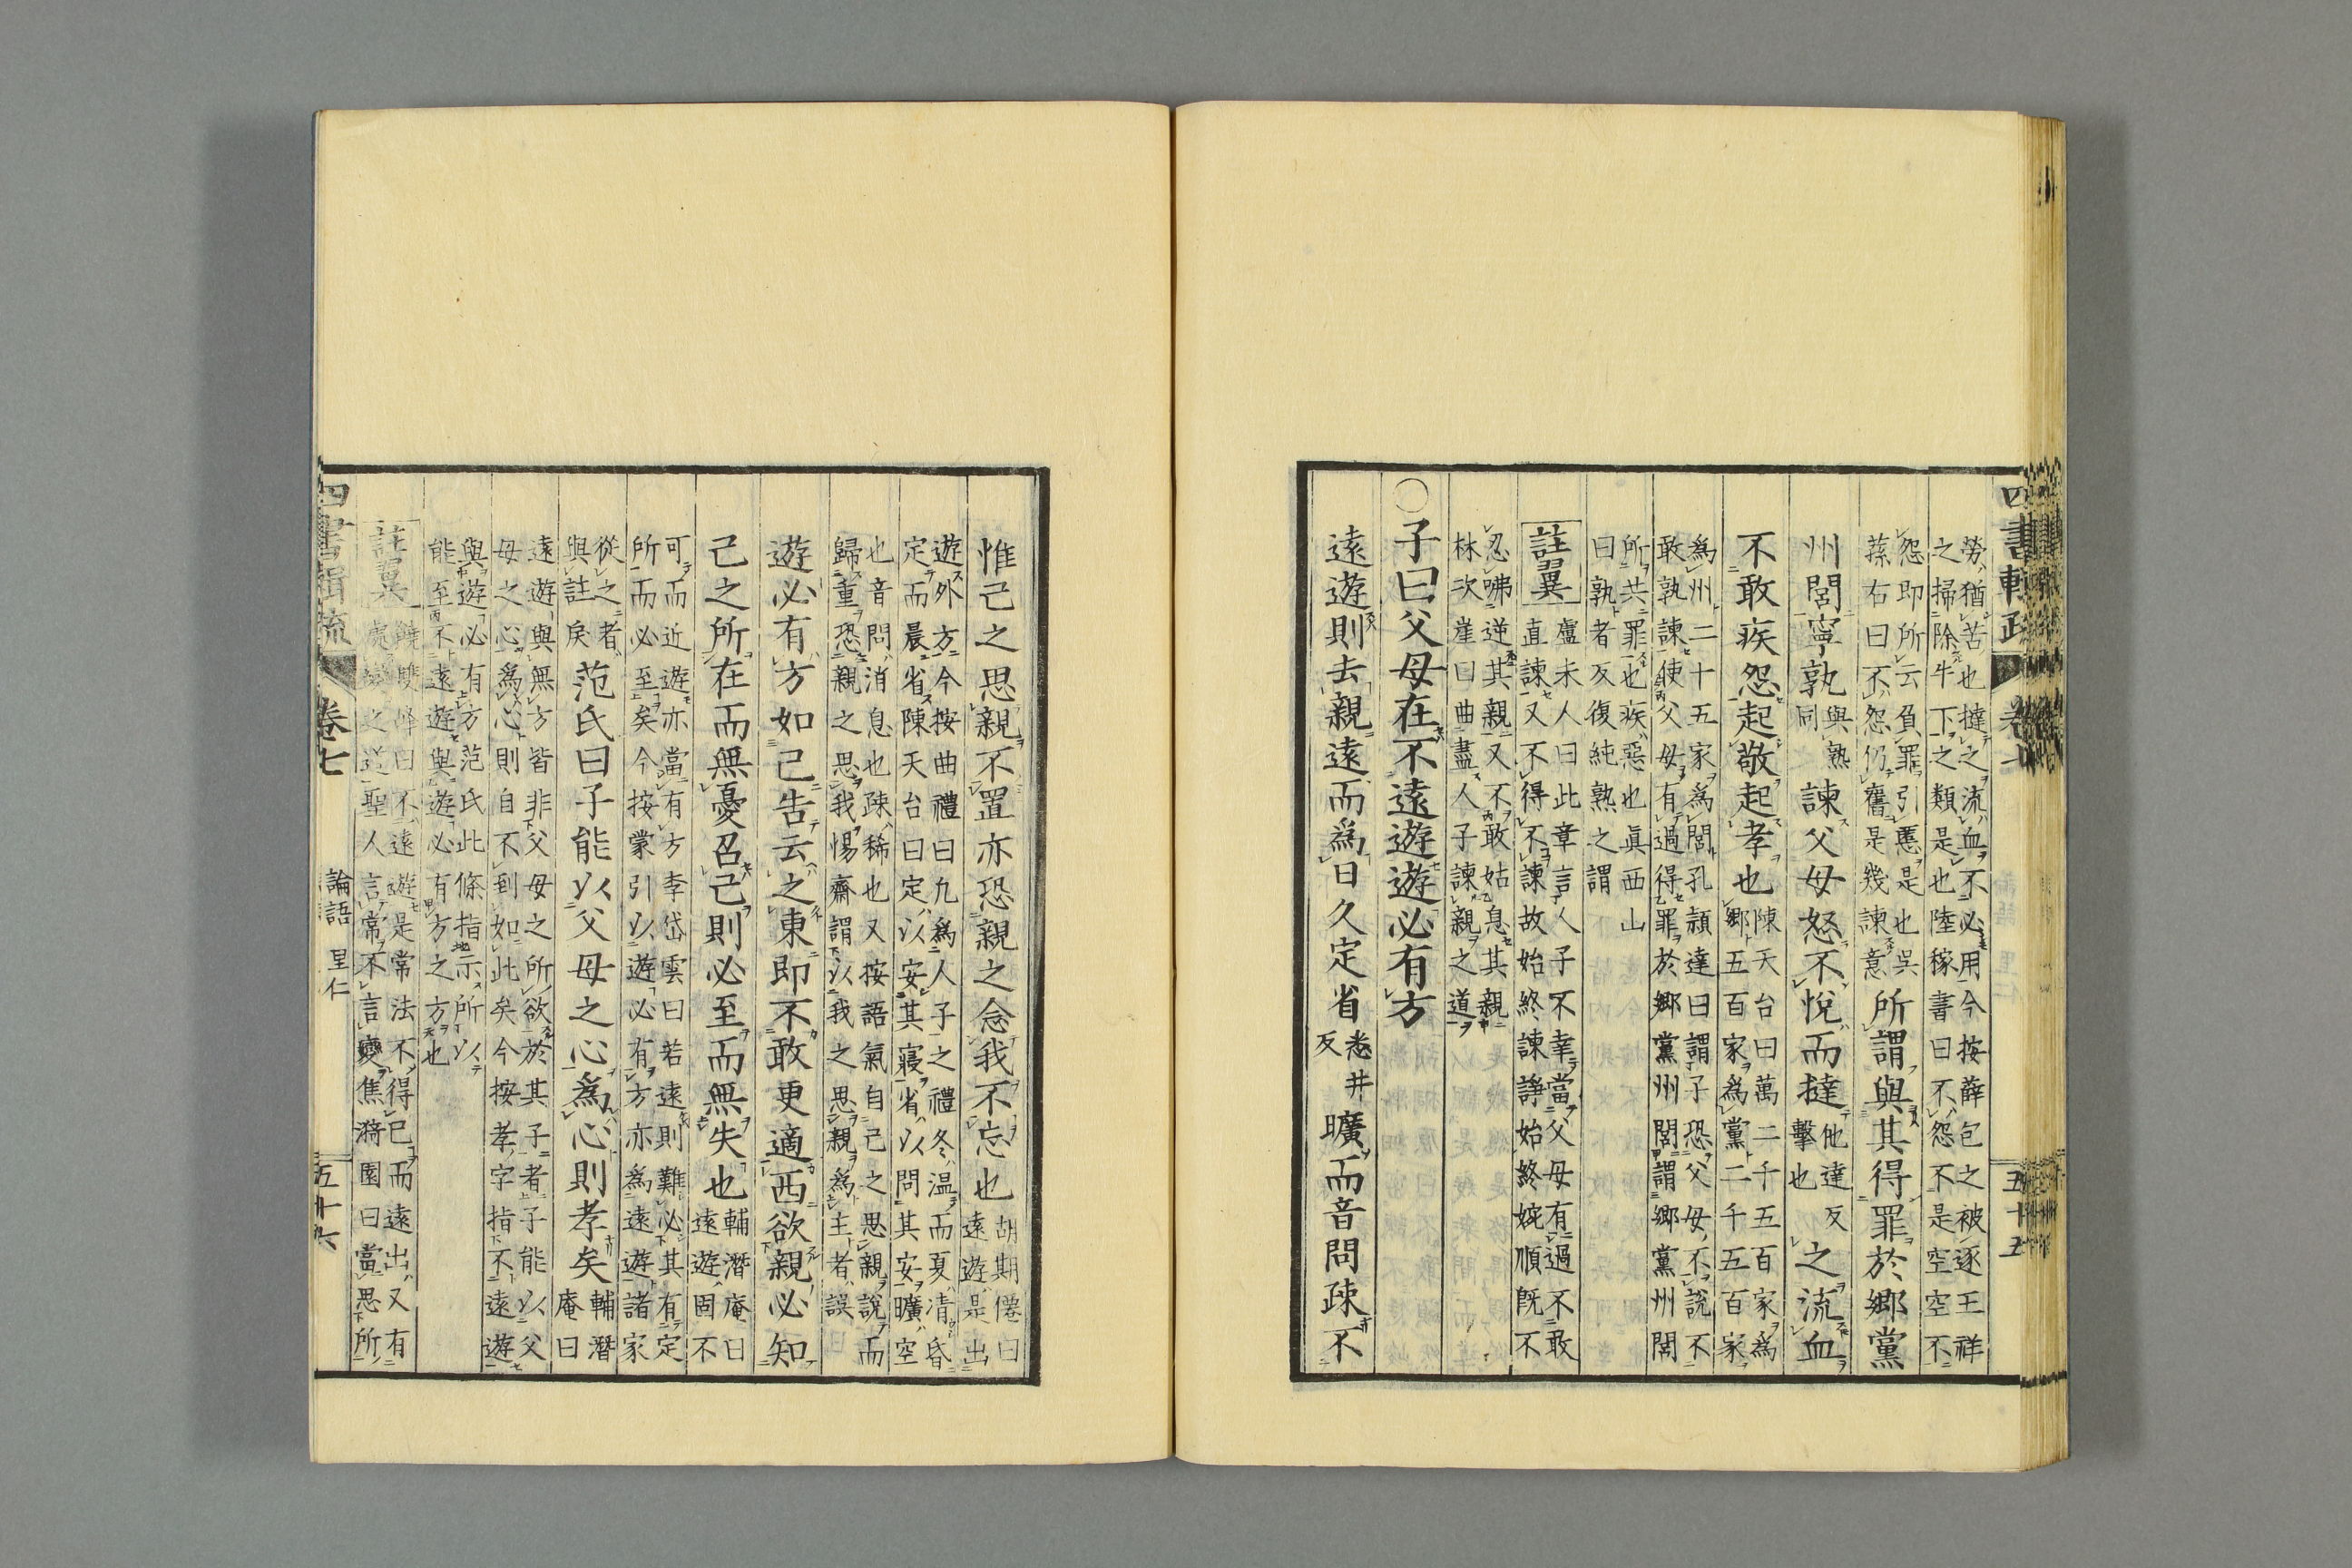 勞猶苦也撻之流血不必用今按薛包之被逐王祥
之掃除牛下之類是也陸稼書曰不怨不是空空不
怨即所云負罪引慝是也吳
蓀右曰不怨仍舊是幾諫意
所謂與其得罪於鄉黨
州閭寧孰
與熟
同
諫父母怒不悅而撻
他達反
擊也
之流血
不敢疾怨起敬起孝也
陳天台曰萬二千五百家爲
鄉五百家爲黨二千五百家
爲州二十五家爲閭孔頴達曰謂子恐父母不說不
敢孰諫使父母有過得罪於鄉黨州閭謂鄉黨州閭
所共罪也疾惡也眞西山
曰孰者反復純熟之謂
註翼
盧未人曰此章言人子不幸當父母有過不敢
直諫又不得不諫故始終諫諍始終婉順旣不
忍咈逆其親又不敢姑息其親
林次崖曰曲盡人子諫親之道
○子曰父母在不遠遊遊必有方
遠遊則去親遠而爲日久定省
悉井
反
曠而音問疎不
惟己之思親不置亦恐親之念我不忘也
胡期僊曰
遠遊是出
遊外方今按曲禮曰凢爲人子之禮冬溫而夏凊昏
定而晨省陳天台曰定以安其寢省以問其安曠空
也音問消息也疎稀也又按語氣自己之思親說而
歸重恐親之思我惕齋謂以我之思親爲主者誤
遊必有方如己告云之東即不敢更適西欲親必知
己之所在而無憂召己則必至而無失也
輔潛庵曰
遠遊固不
可而近遊亦當有方李岱雲曰若遠則難必其有定
所而必至矣今按蒙引以遊必有方亦爲遠遊諸家
從之者
與註戾
范氏曰子能以父母之心爲心則孝矣
輔潛
庵曰
遠遊與無方皆非父母之所欲於其子者子能以父
母之心爲心則自不到如此矣今按孝字指不遠遊
與遊必有方范氏此條指示所以
能至不遠遊與遊必有方之方也
註翼
饒雙峰曰不遠遊是常法不得已而遠出又有
處變之道聖人言常不言變焦漪園曰當思所
四書輯疏
卷七
論語
里仁
五十六
四書輯疏
卷七
五十五